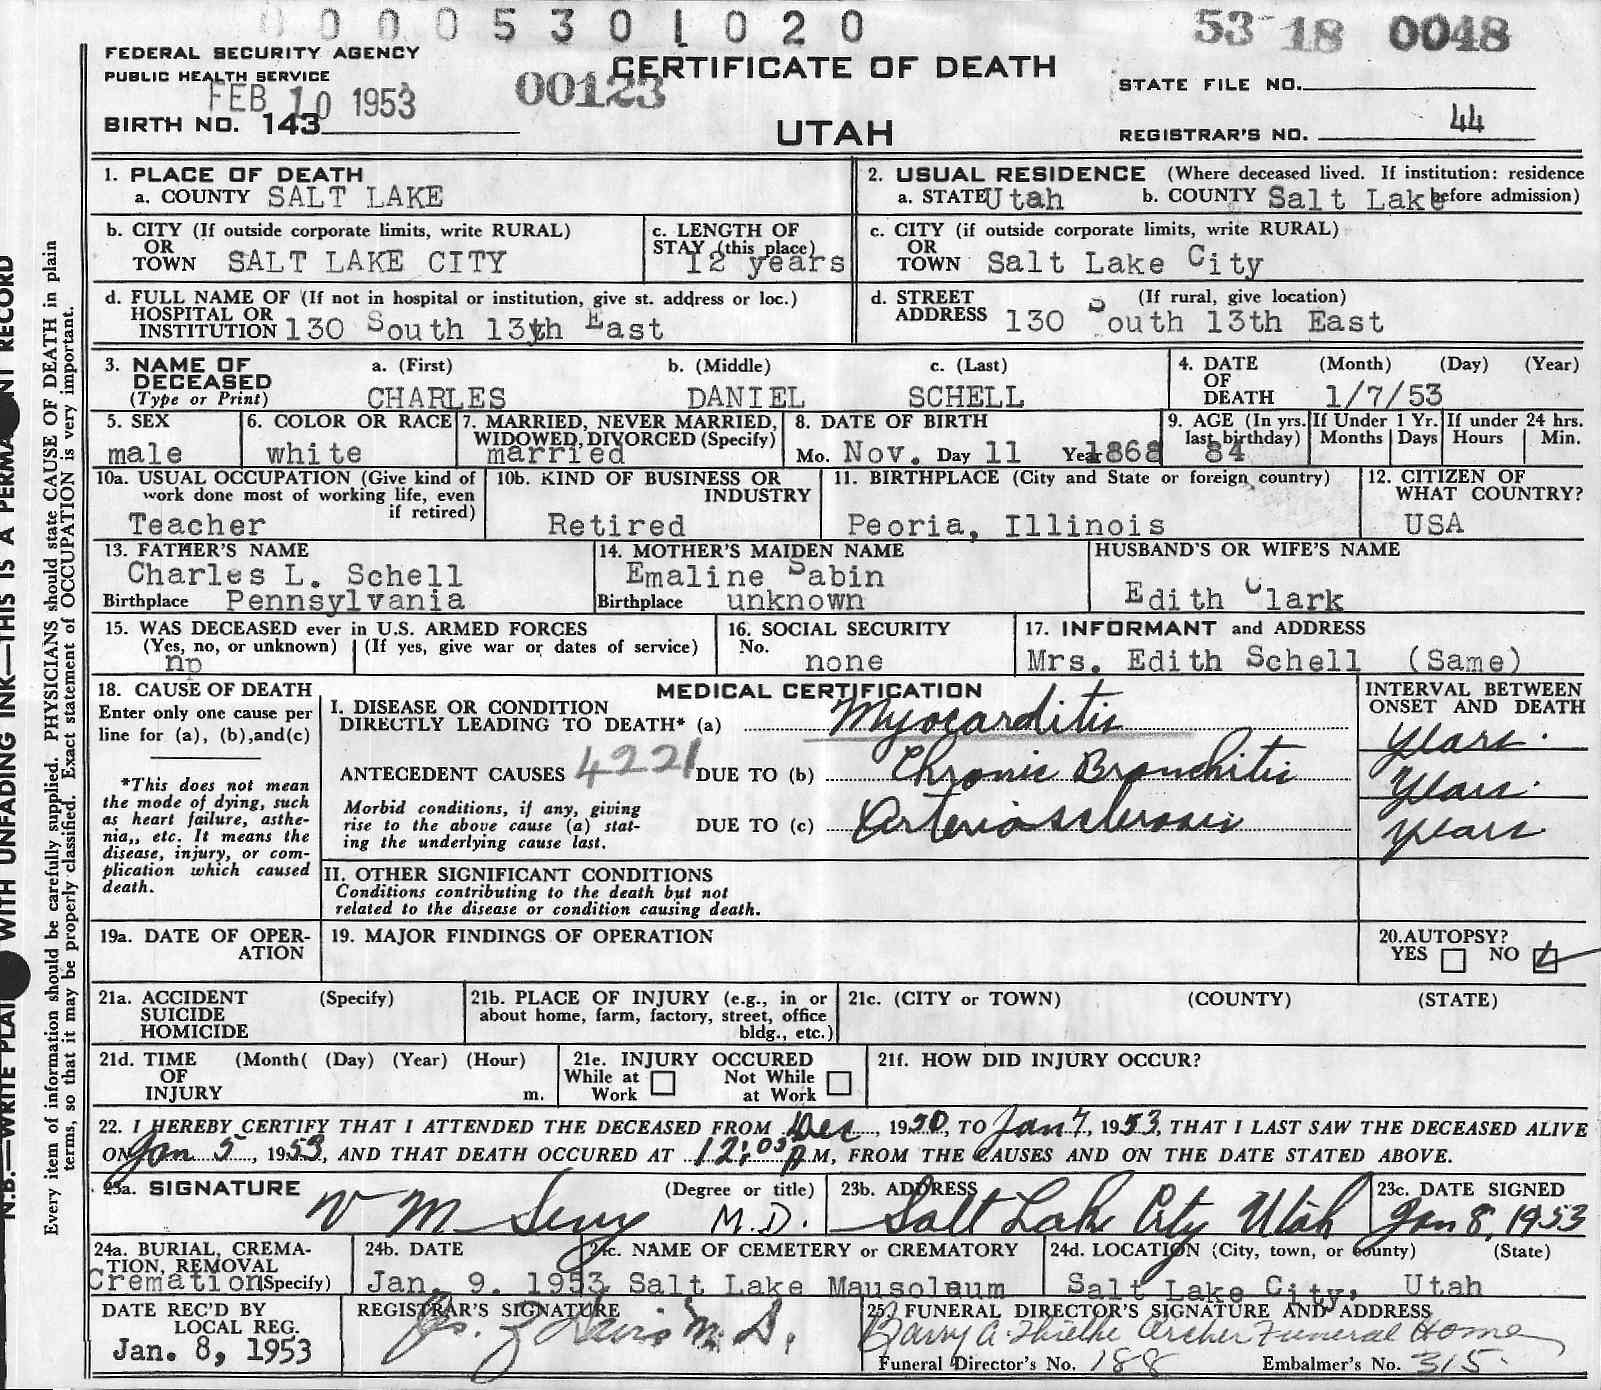 0 0 0 0 5 3 0 1 0 2 0
53 18 0048
FEDERAL SECURITY AGENCY
PUBLIC HEALTH SERVICE
FEB 10 1953
00123
CERTIFICATE OF DEATH
STATE FILE NO.
BIRTH NO. 143
UTAH
REGISTRAR'S NO. 44
1. PLACE OF DEATH
a. COUNTY SALT LAKE
2. USUAL RESIDENCE (Where deceased lived. If institution: residence before admission)
a. STATE Utah b. COUNTY Salt Lake
b. CITY (If outside corporate limits, write RURAL)
OR
TOWN SALT LAKE CITY
c. LENGTH OF
STAY (this place)
12 years
c. CITY (if outside corporate limits, write RURAL)
OR
TOWN Salt Lake City
d. FULL NAME OF (If not in hospital or institution, give st. address or loc.)
HOSPITAL OR
INSTITUTION 130 South 13th East
d. STREET (If rural, give location)
ADDRESS 130 South 13th East
3. NAME OF DECEASED
(Type or Print)
a. (First) b. (Middle) c. (Last)
CHARLES DANIEL SCHELL
4. DATE OF DEATH (Month) (Day) (Year)
1/7/53
5. SEX
male
6. COLOR OR RACE
white
7. MARRIED, NEVER MARRIED,
WIDOWED, DIVORCED (Specify)
married
8. DATE OF BIRTH
Mo. Nov. Day 11 Year 1868
9. AGE (In yrs. last birthday)
84
If Under 1 Yr.
Months Days
If under 24 hrs.
Hours Min.
10a. USUAL OCCUPATION (Give kind of
work done most of working life, even
if retired)
Teacher
10b. KIND OF BUSINESS OR
INDUSTRY
Retired
11. BIRTHPLACE (City and State or foreign country)
Peoria, Illinois
12. CITIZEN OF
WHAT COUNTRY?
USA
13. FATHER'S NAME
Charles L. Schell
Birthplace Pennsylvania
14. MOTHER'S MAIDEN NAME
Emaline Sabin
Birthplace unknown
HUSBAND'S OR WIFE'S NAME
Edith Clark
15. WAS DECEASED ever in U.S. ARMED FORCES
(Yes, no, or unknown) (If yes, give war or dates of service)
no
16. SOCIAL SECURITY
No.
none
17. INFORMANT and ADDRESS
Mrs. Edith Schell (Same)
18. CAUSE OF DEATH
Enter only one cause per
line for (a), (b),and(c)
*This does not mean
the mode of dying, such
as heart failure, asthe-
nia,, etc. It means the
disease, injury, or com-
plication which caused
death.
MEDICAL CERTIFICATION
I. DISEASE OR CONDITION
DIRECTLY LEADING TO DEATH* (a) Myocarditis
ANTECEDENT CAUSES 4221 DUE TO (b) Chronic Bronchitis
Morbid conditions, if any, giving
rise to the above cause (a) stat-
ing the underlying cause last.
DUE TO (c) Arteriosclerosis
INTERVAL BETWEEN
ONSET AND DEATH
Years.
Years.
Years
II. OTHER SIGNIFICANT CONDITIONS
Conditions contributing to the death but not
related to the disease or condition causing death.
19a. DATE OF OPER-
ATION
19. MAJOR FINDINGS OF OPERATION
20.AUTOPSY?
YES NO
21a. ACCIDENT (Specify)
SUICIDE
HOMICIDE
21b. PLACE OF INJURY (e.g., in or
about home, farm, factory, street, office
bldg., etc.)
21c. (CITY or TOWN) (COUNTY) (STATE)
21d. TIME (Month( (Day) (Year) (Hour)
OF
INJURY m.
21e. INJURY OCCURED
While at Work Not While at Work
21f. HOW DID INJURY OCCUR?
22. I HEREBY CERTIFY THAT I ATTENDED THE DECEASED FROM Dec, 1950, TO Jan 7, 1953, THAT I LAST SAW THE DECEASED ALIVE
ON Jan 5, 1953, AND THAT DEATH OCCURED AT 12:05 A.M, FROM THE CAUSES AND ON THE DATE STATED ABOVE.
23a. SIGNATURE (Degree or title)
V M Sevy M.D.
23b. ADDRESS
Salt Lake City Utah
23c. DATE SIGNED
Jan 8, 1953
24a. BURIAL, CREMA-
TION, REMOVAL
Cremation (Specify)
24b. DATE
Jan. 9. 1953
24c. NAME OF CEMETERY or CREMATORY
Salt Lake Mausoleum
24d. LOCATION (City, town, or county) (State)
Salt Lake City, Utah
DATE REC'D BY
LOCAL REG.
Jan. 8, 1953
REGISTRAR'S SIGNATURE
M. D.
25. FUNERAL DIRECTOR'S SIGNATURE AND ADDRESS
Barry A. Thielke Archer Funeral Home
Funeral Director's No. 188 Embalmer's No. 315.
WITH UNFADING INK—THIS IS A
RECORD
N.B.—WRITE
Every item of information should be carefully supplied. PHYSICIANS should state CAUSE OF DEATH in plain
terms, so that it may be properly classified. Exact statement of OCCUPATION is very important.